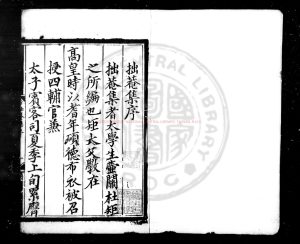 拙菴集序
拙菴集者太學生壺關杜矩
之所編也矩大父斅在
高皇時以耆年碩德布衣被召
授四輔官兼
太子賓客司夏季上旬累膺